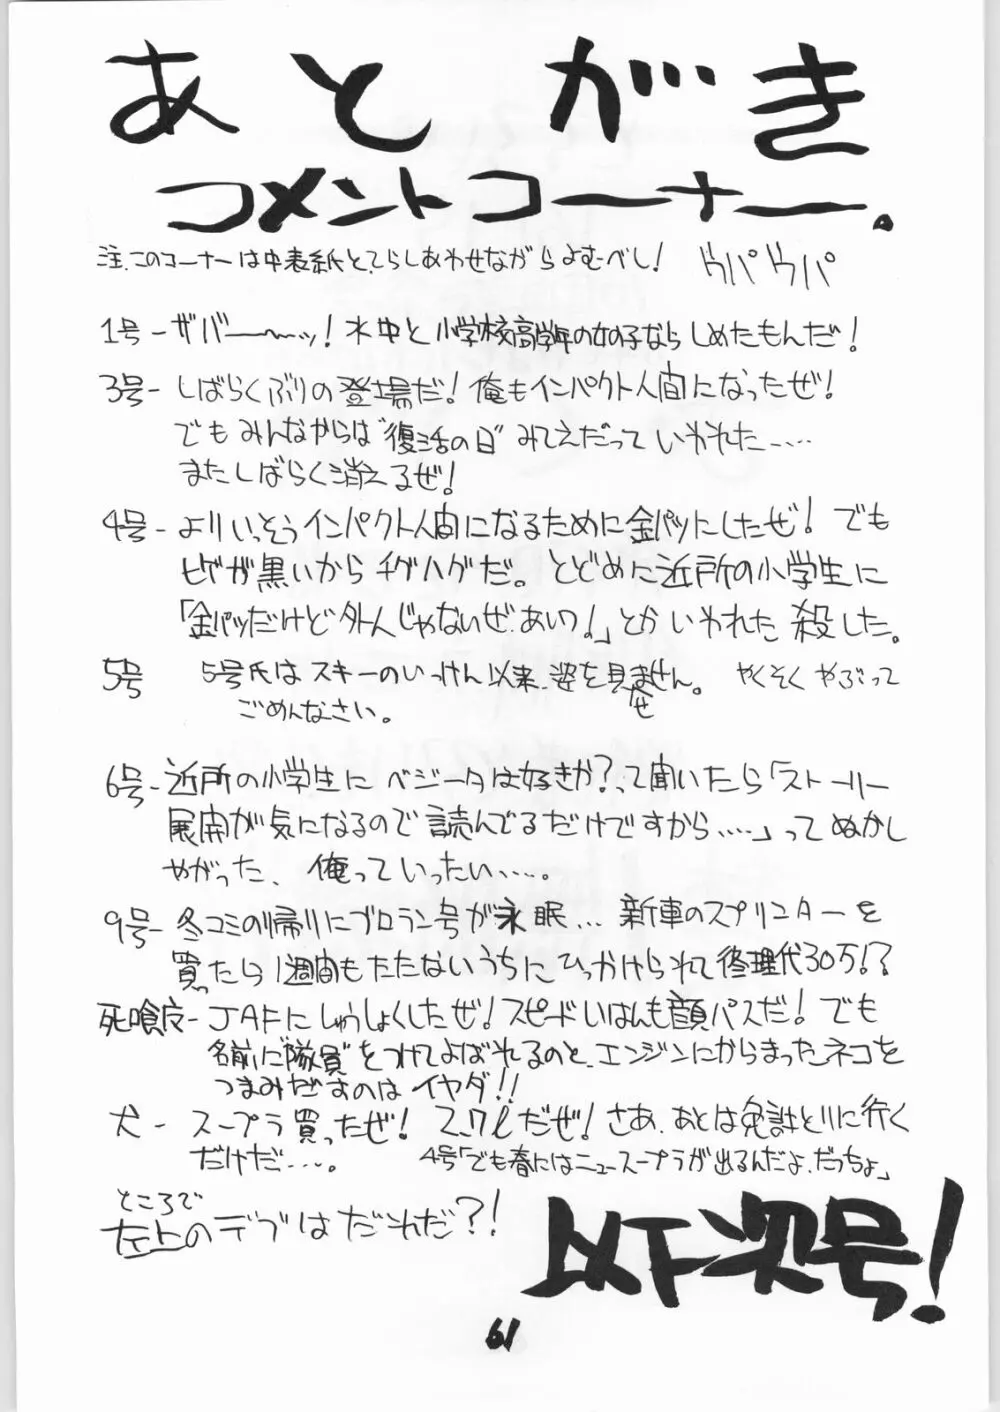 あとがき
コメントコーナー。
注.このコーナーは中表紙とてらしあわせながらよむべし! ウパウパ
1号-ザバー〜〜ッ! 水中と小学校高学年の女の子ならしめたもんだ!
3号-しばらくぶりの登場だ!俺もインパクト人間になったぜ!
でもみんなからは"復活の日"みてえだっていわれた……
またしばらく消えるぜ!
4号-よりいっそうインパクト人間になるために金パツにしたぜ!でも
ヒゲが黒いからチグハグだ。とどめに近所の小学生に
「金パツだけど外人じゃないぜ、あいつ!」とかいわれた 殺した。
5号 5号氏はスキーのいっけん以来、姿を見せません。 やくそくやぶって
ごめんなさい。
6号-近所の小学生にベジータは好きか?って聞いたら「ストーリー
展開が気になるので読んでるだけですから……」ってぬかし
やがった、俺っていったい……。
9号-冬コミの帰りにブロラン号が永眠… 新車のスプリンAーを
買ったら1週間もたたないうちにひっかけられて修理代30万!?
死喰皮-JAFにしゅうしょくしたぜ!スピードいはんも顔パスだ!でも
名前に"隊員"をつけてよばれるのと、エンジンにからまったネコを
つまみだすのはイヤダ!!
犬-スープラ買ったぜ! 2.7ℓだぜ!さあ、あとは免許とりに行く
だけだ……。 4号「でも春にはニュースープラが出るんだよ、だっちょ」
ところで
左上のデブはだれだ?!
以下次号!
61